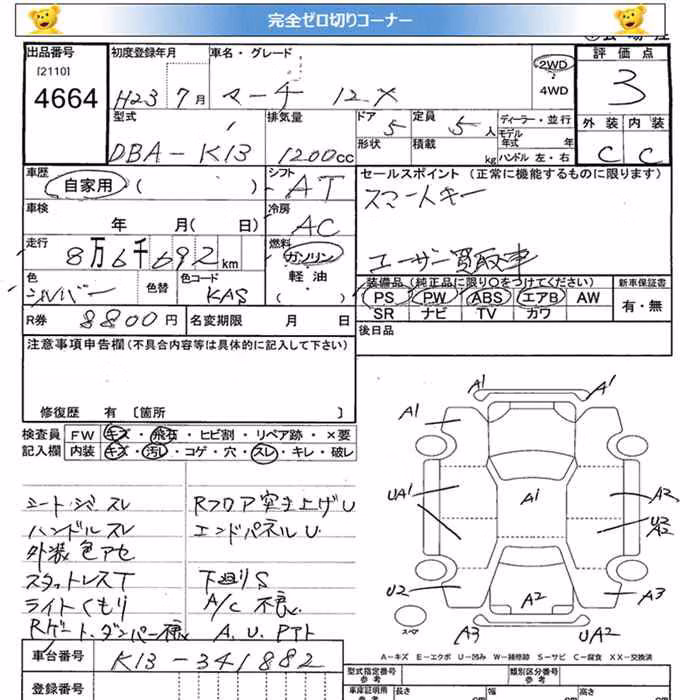 完全ゼロ切りコーナー
出品番号 初度登録年月 車名・グレード 評価点
[2110]
4664 H23 7月 マーチ 12.X 2WD 4WD 3
型式 排気量 ドア 5 定員 5人 ディーラー・並行 外装 内装
DBA-K13 1200cc 形状 積載 kg モデル年式 年 ハンドル 左・右 C C
車歴 シフト セールスポイント (正常に機能するものに限ります)
自家用 ( ) AT スマートキー
車検 冷房
年 月( 日) AC
走行 燃料 ユーザー買取車
8万6千692km ガソリン
軽油
( )
色 色替 色コード 装備品 (純正品に限り○をつけてください) 新車保証書
シルバー KAS PS PW ABS エアB AW 有・無
SR ナビ TV カワ
R券 8800円 名変期限 月 日 後日品
注意事項申告欄(不具合内容等は具体的に記入して下さい)
修復歴 有 〔箇所 〕
検査員 FW キズ・飛石・ヒビ割・リペア跡・×要
記入欄 内装 キズ・汚レ・コゲ・穴・スレ・キレ・破レ
シート・シミ スレ
ハンドル スレ
外装 色アセ
スタットレスT
ライトくもり
Rゲート・ダンパー
Rフロア突き上げU
エンドパネルU
下廻りS
A/C 不良
A1 A1
A1
UA1 A1 A2
U2
A2
U2 A2 A3
スペア A3 UA2
A-キズ E-エクボ U-凹み W-補修跡 S-サビ C-腐食 XX-交換済
車台番号 K13-341882
登録番号
型式指定番号 参考 類別区分番号 参考
車庫証明用 参考 長さ 幅 高さ